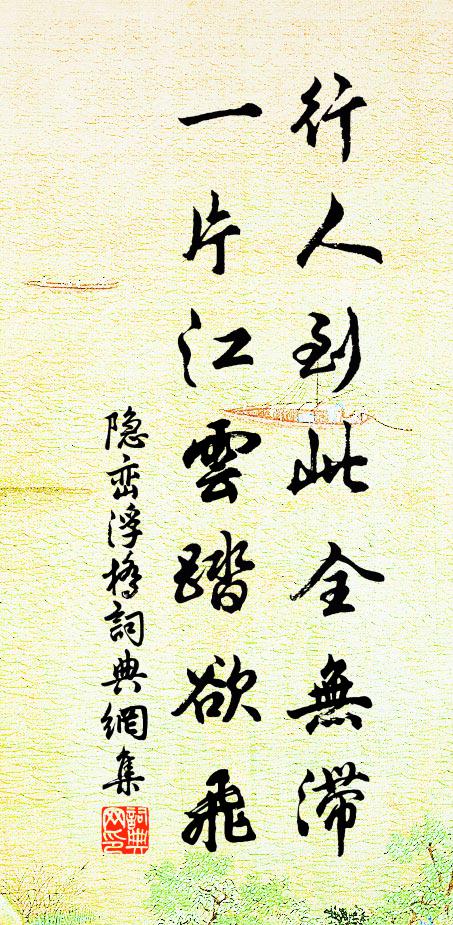 行人到此全無滯
一片江雲踏欲飛
隐峦浮橋詞典網集
詞典
网印